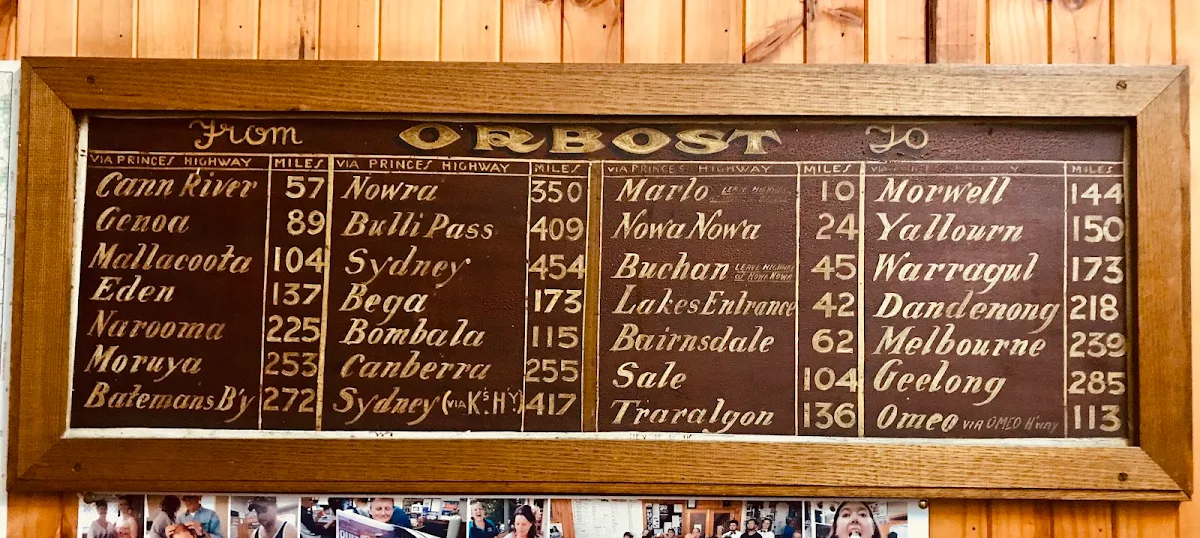 From ORBOST To
VIA PRINCES HIGHWAY MILES
Cann River 57
Genoa 89
Mallacoota 104
Eden 137
Narooma 225
Moruya 253
Batemans B'y 272
VIA PRINCES HIGHWAY MILES
Nowra 350
Bulli Pass 409
Sydney 454
Bega 173
Bombala 115
Canberra 255
Sydney (VIA K's. H'Y.) 417
VIA PRINCES HIGHWAY MILES
Marlo LEAVE HIGHWAY 10
Nowa Nowa 24
Buchan LEAVE HIGHWAY at NOWA NOWA 45
Lakes Entrance 42
Bairnsdale 62
Sale 104
Traralgon 136
MILES
Morwell 144
Yallourn 150
Warragul 173
Dandenong 218
Melbourne 239
Geelong 285
Omeo VIA OMEO H'WAY 113